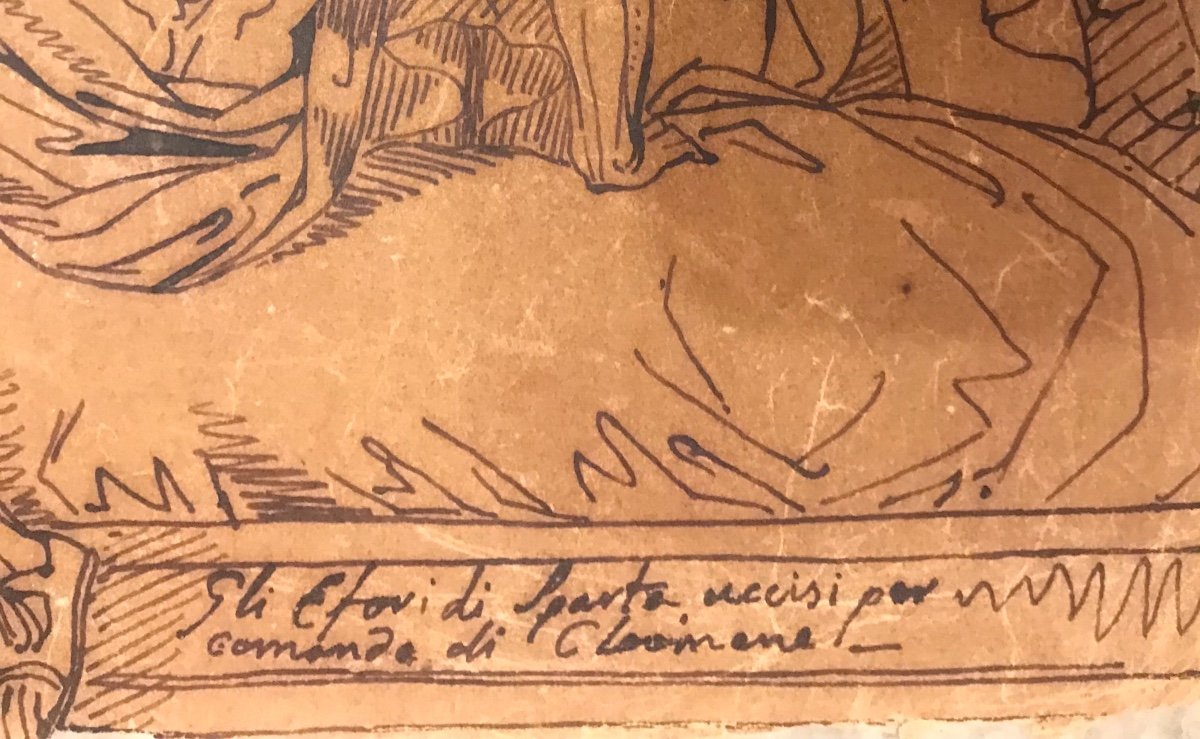 Gli Efori di Sparta uccisi per
comando di Cleomene